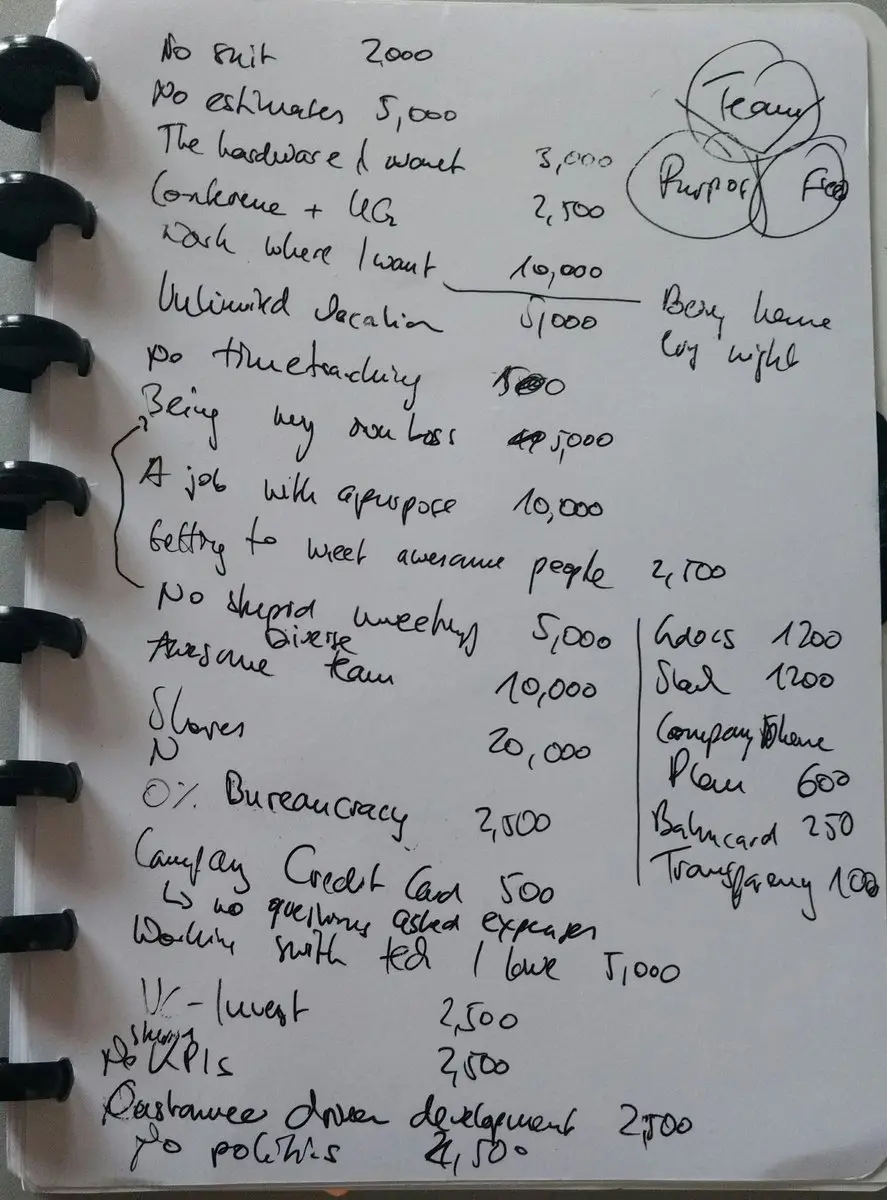 No suit 2,000
No estimates 5,000
The hardware I want 3,000
Conference + UGs 2,500
Work where I want 10,000
Unlimited Vacation 5,000
No timetracking
Being my own boss 5,000
A job with a purpose 10,000
Getting to meet awesome people 2,500
No stupid meetings 5,000
Diverse
Awesome team 10,000
Shares 20,000
N
0% Bureaucracy 2,500
Company Credit Card 500
↳ no questions asked expenses
Working with tech I love 5,000
VC-Invest 2,500
No KPIs 2,500
Customer driven development 2,500
No politics
Team
Purpose
Being home
by night
Gdocs 1200
Slack 1200
Company Phone
Plan 600
Bahncard 250
Transparency 100